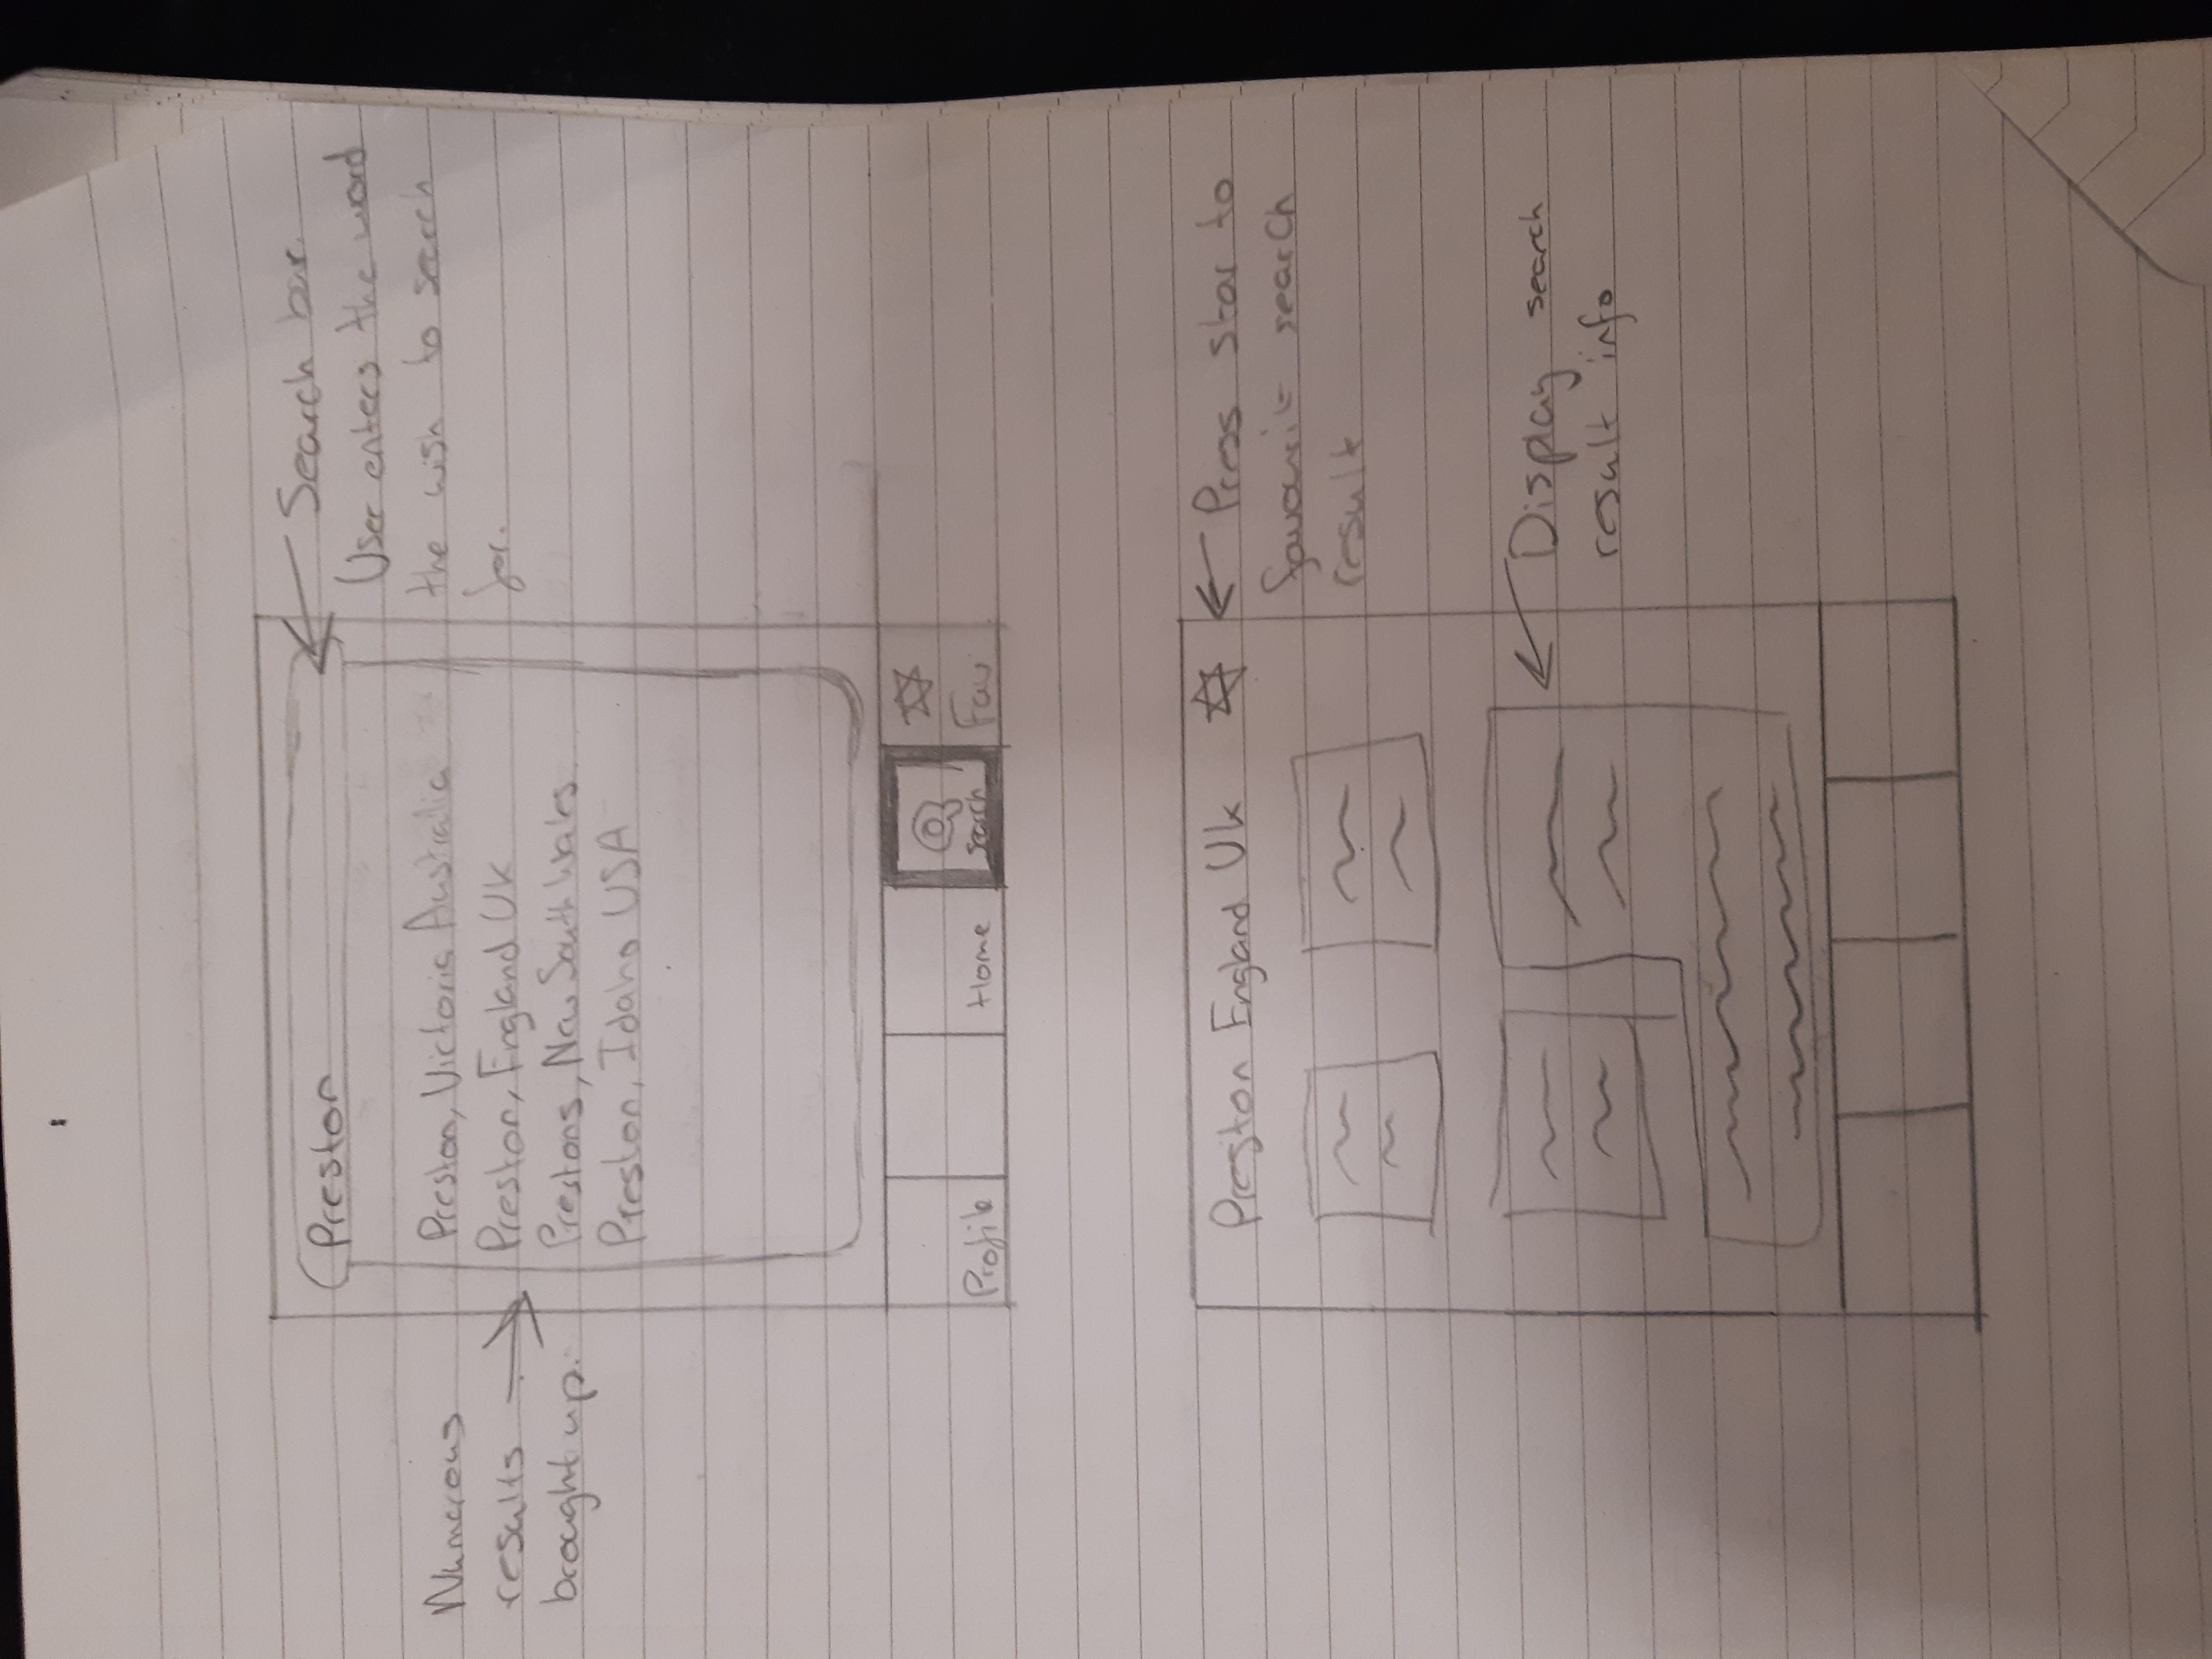 Preston
Search bar.
User enters the word
the wish to search
for.
Numerous
results
brought up.
Preston, Victoria Australia
Preston, England UK
Prestons, New South Wales
Preston, Idaho USA
Profile
Home
Search
Fav
Preston England Uk
Press star to
favourite search
result
Display search
result info